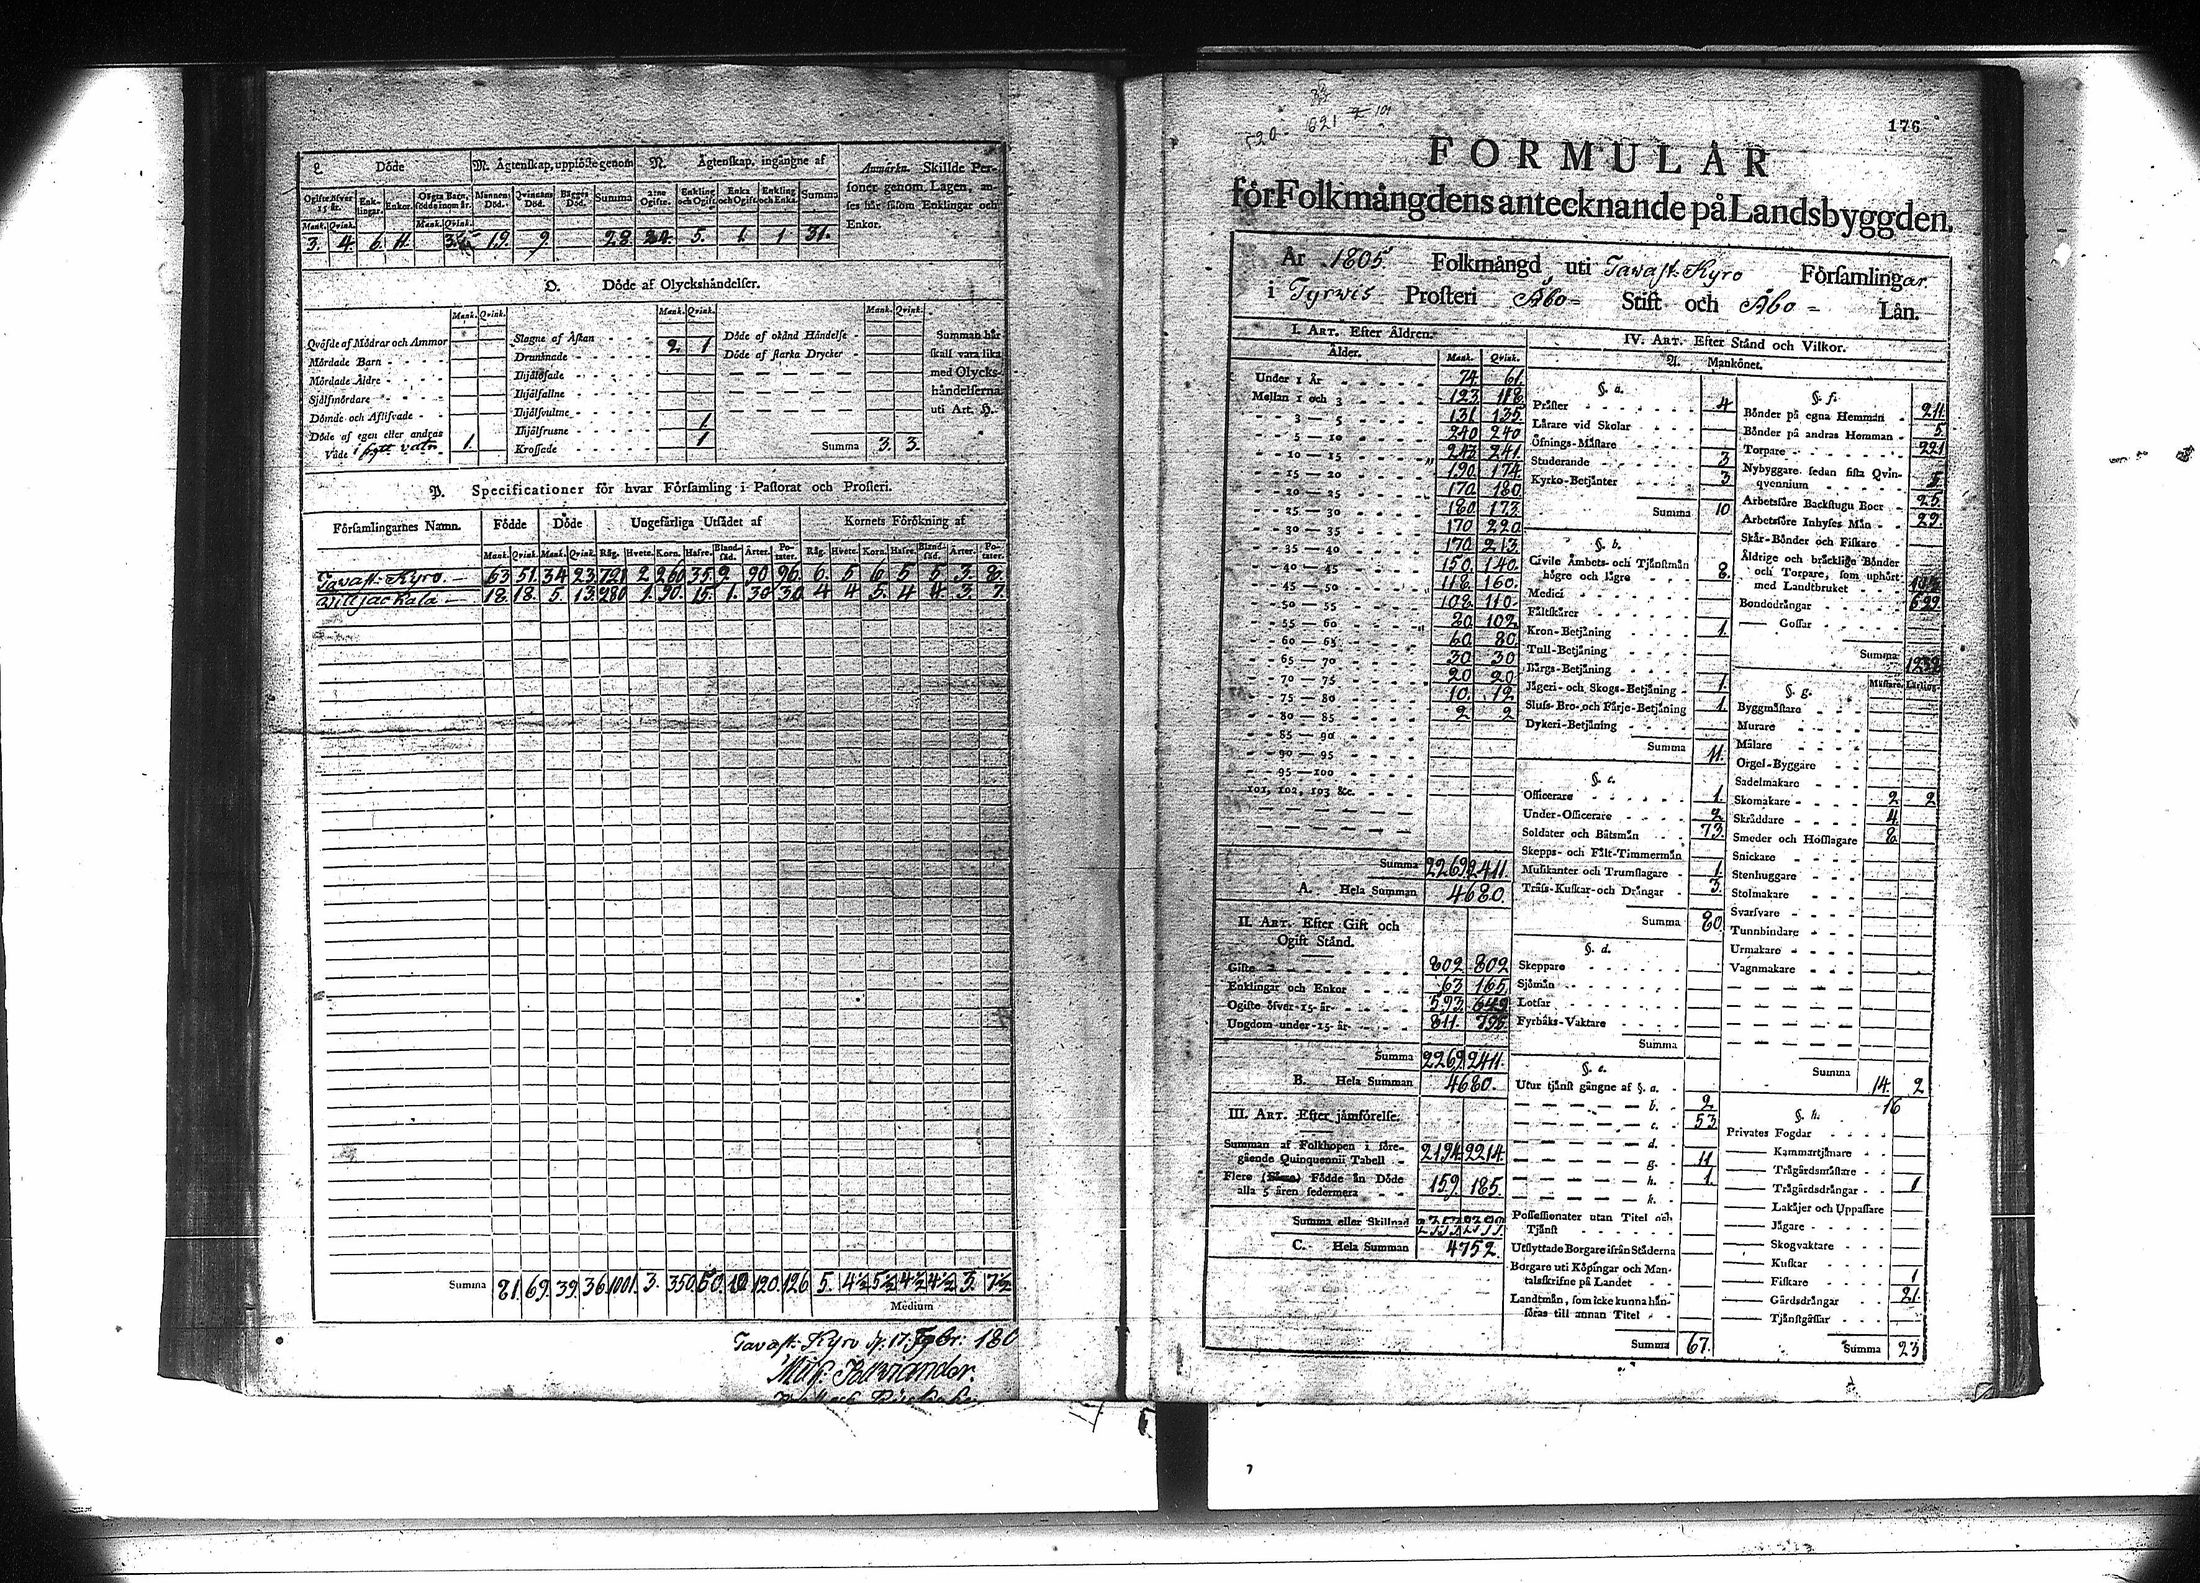 L Döde
M. Ägtenskap, upplöste genom
N. Ägtenskap, ingångne af
Anmärkn. Skillde Personer genom Lagen, anses här såsom Enklingar och Enkor.
Ogifte öfver 15 år. Enklingar. Enkor. Oägta Barn, födde inom år. Mannens Död. Qvinnans Död. Bägges Död. Summa 2:ne Ogifte. Enkling och Ogift. Enka och Ogift. Enkling och Enka. Summa
Mank. Qvink. Mank. Qvink.
3. 4. 6. 11. 19. 9. 28. 24. 5. 1. 1 31.
O. Döde af Olyckshändelser.
Mank. Qvink. Mank. Qvink. Mank. Qvink.
Qväfde af Mödrar och Ammor
Mördade Barn
Mördade Äldre
Sjelfmördare
Dömde och Aflifvade
Döde af egen eller andras
Våde i hytt vatn 1.
Slagne af Åskan
Drunknade 2. 1
Ihjälösade
Ihjälfallne
Ihjälsvultne
Ihjälfrusne 1
Krossade 1
Döde af okänd Händelse
Döde af starka Drycker
Summa 3. 3.
Summan här skall vara lika med Olyckshändelserna uti Art. H.
P. Specificationer för hvar Församling i Pastorat och Prosteri.
Församlingarnes Namn. Födde Döde Ungefärliga Utsädet af Kornets Förökning af
Mank. Qvink. Mank. Qvink. Råg. Hvete. Korn. Hafre. Blandsäd. Ärter. Potater. Råg. Hvete. Korn. Hafre. Blandsäd. Ärter. Potater.
Tavast-Kyro 63 51 34 23 721 2 260 35 9 90 96 6. 5 6 5 5 3. 8.
Williackala 18. 18. 5. 13. 280 1. 90. 15. 1. 30 30 4 4 5. 4 4. 3. 7.
Summa 81. 69. 39. 36. 1001. 3. 350. 50. 10 120. 126. 5. 4½ 5½ 4½ 4½ 3. 7½
Medium
Tavast-Kyro d. 17. Febr. 180
176
520 - 521
FORMULÄR
för Folkmängdens antecknande på Landsbyggden.
År 1805. Folkmängd uti Tawast-Kyro Församlingar
i Tyrwis Prosteri Åbo Stift och Åbo Län.
I. Art. Efter Åldren.
Ålder. Mank. Qvink.
Under 1 År 74. 61.
Mellan 1 och 3 123 118
3 — 5 131 135
5 — 10 240 240
10 — 15 243 241.
15 — 20 190 174
20 — 25 170 180
25 — 30 180 173.
30 — 35 170 220
35 — 40 170. 213.
40 — 45 150. 140.
45 — 50 118. 160.
50 — 55 108. 110.
55 — 60 80. 102.
60 — 65 60 80.
65 — 70 30. 30
70 — 75 20 20.
75 — 80 10. 12
80 — 85 2 2
85 — 90
90 — 95
95 — 100
101, 102, 103 &c.
Summa 2269. 2411.
A. Hela Summan 4680.
II. Art. Efter Gift och Ogift Stånd.
Gifte 802 802
Enklingar och Enkor 63 165.
Ogifte öfver 15 år 593. 649
Ungdom under 15 år 811. 795.
Summa 2269. 2411.
B. Hela Summan 4680.
III. Art. Efter jämförelse.
Summan af Folkhopen i föregående Quinquennii Tabell 2194. 2214.
Flere Födde än Döde alla 5 åren sedermera 159. 185.
Summa eller Skillnad
C. Hela Summan 4752
IV. Art. Efter Stånd och Vilkor.
A. Mankönet.
§. a.
Präster 4
Lärare vid Skolar
Öfnings-Mästare
Studerande 3
Kyrko-Betjänter 3
Summa 10
§. b.
Civile Ämbets- och Tjänstmän högre och lägre 8.
Medici
Fältskärer
Kron-Betjäning 1.
Tull-Betjäning
Bergs-Betjäning
Jägeri- och Skogs-Betjäning 1.
Sluss- Bro- och Färje-Betjäning 1.
Dykeri-Betjäning
Summa 11.
§. c.
Officerare 1.
Under-Officerare 2.
Soldater och Båtsmän 73.
Skepps- och Fält-Timmermän
Musikanter och Trumslagare 1.
Träss-Kuskar och Drängar 3.
Summa 80.
§. d.
Skeppare
Sjömän
Lotsar
Fyrbåks-Vaktare
Summa
§. e.
Utur tjänst gångne af §. a.
b. 2
c. 53
d.
g. 11
h. 1.
k.
Possessionater utan Titel och Tjänst
Utflyttade Borgare ifrån Städerna
Borgare uti Köpingar och Mantalsskrifne på Landet
Landtmän, som icke kunna hänföras till annan Titel
Summa 67.
§. f.
Bönder på egna Hemman 211
Bönder på andras Hemman 5.
Torpare 221
Nybyggare sedan sista Qvinqvennium 5.
Arbetsföre Backstugu Boer 25.
Arbetsföre Inhyses Män 29.
Skär-Bönder och Fiskare
Äldrige och bräcklige Bönder och Torpare, som uphört med Landtbruket
Bondedrängar 629
Gossar
Summa 1232
§. g. Mästare. Lärling.
Byggmästare
Murare
Målare
Orgel-Byggare
Sadelmakare
Skomakare 2 2
Skräddare 4.
Smeder och Hofslagare 8.
Snickare
Stenhuggare
Stolmakare
Svarfvare
Tunnbindare
Urmakare
Vagnmakare
Summa 14. 2
16
§. h.
Privates Fogdar
Kammartjänare
Trägårdsmästare
Trägårdsdrängar 1
Lakäjer och Uppassare
Jägare
Skogvaktare
Kuskar
Fiskare 1
Gårdsdrängar 21.
Tjänstgåssar
Summa 23